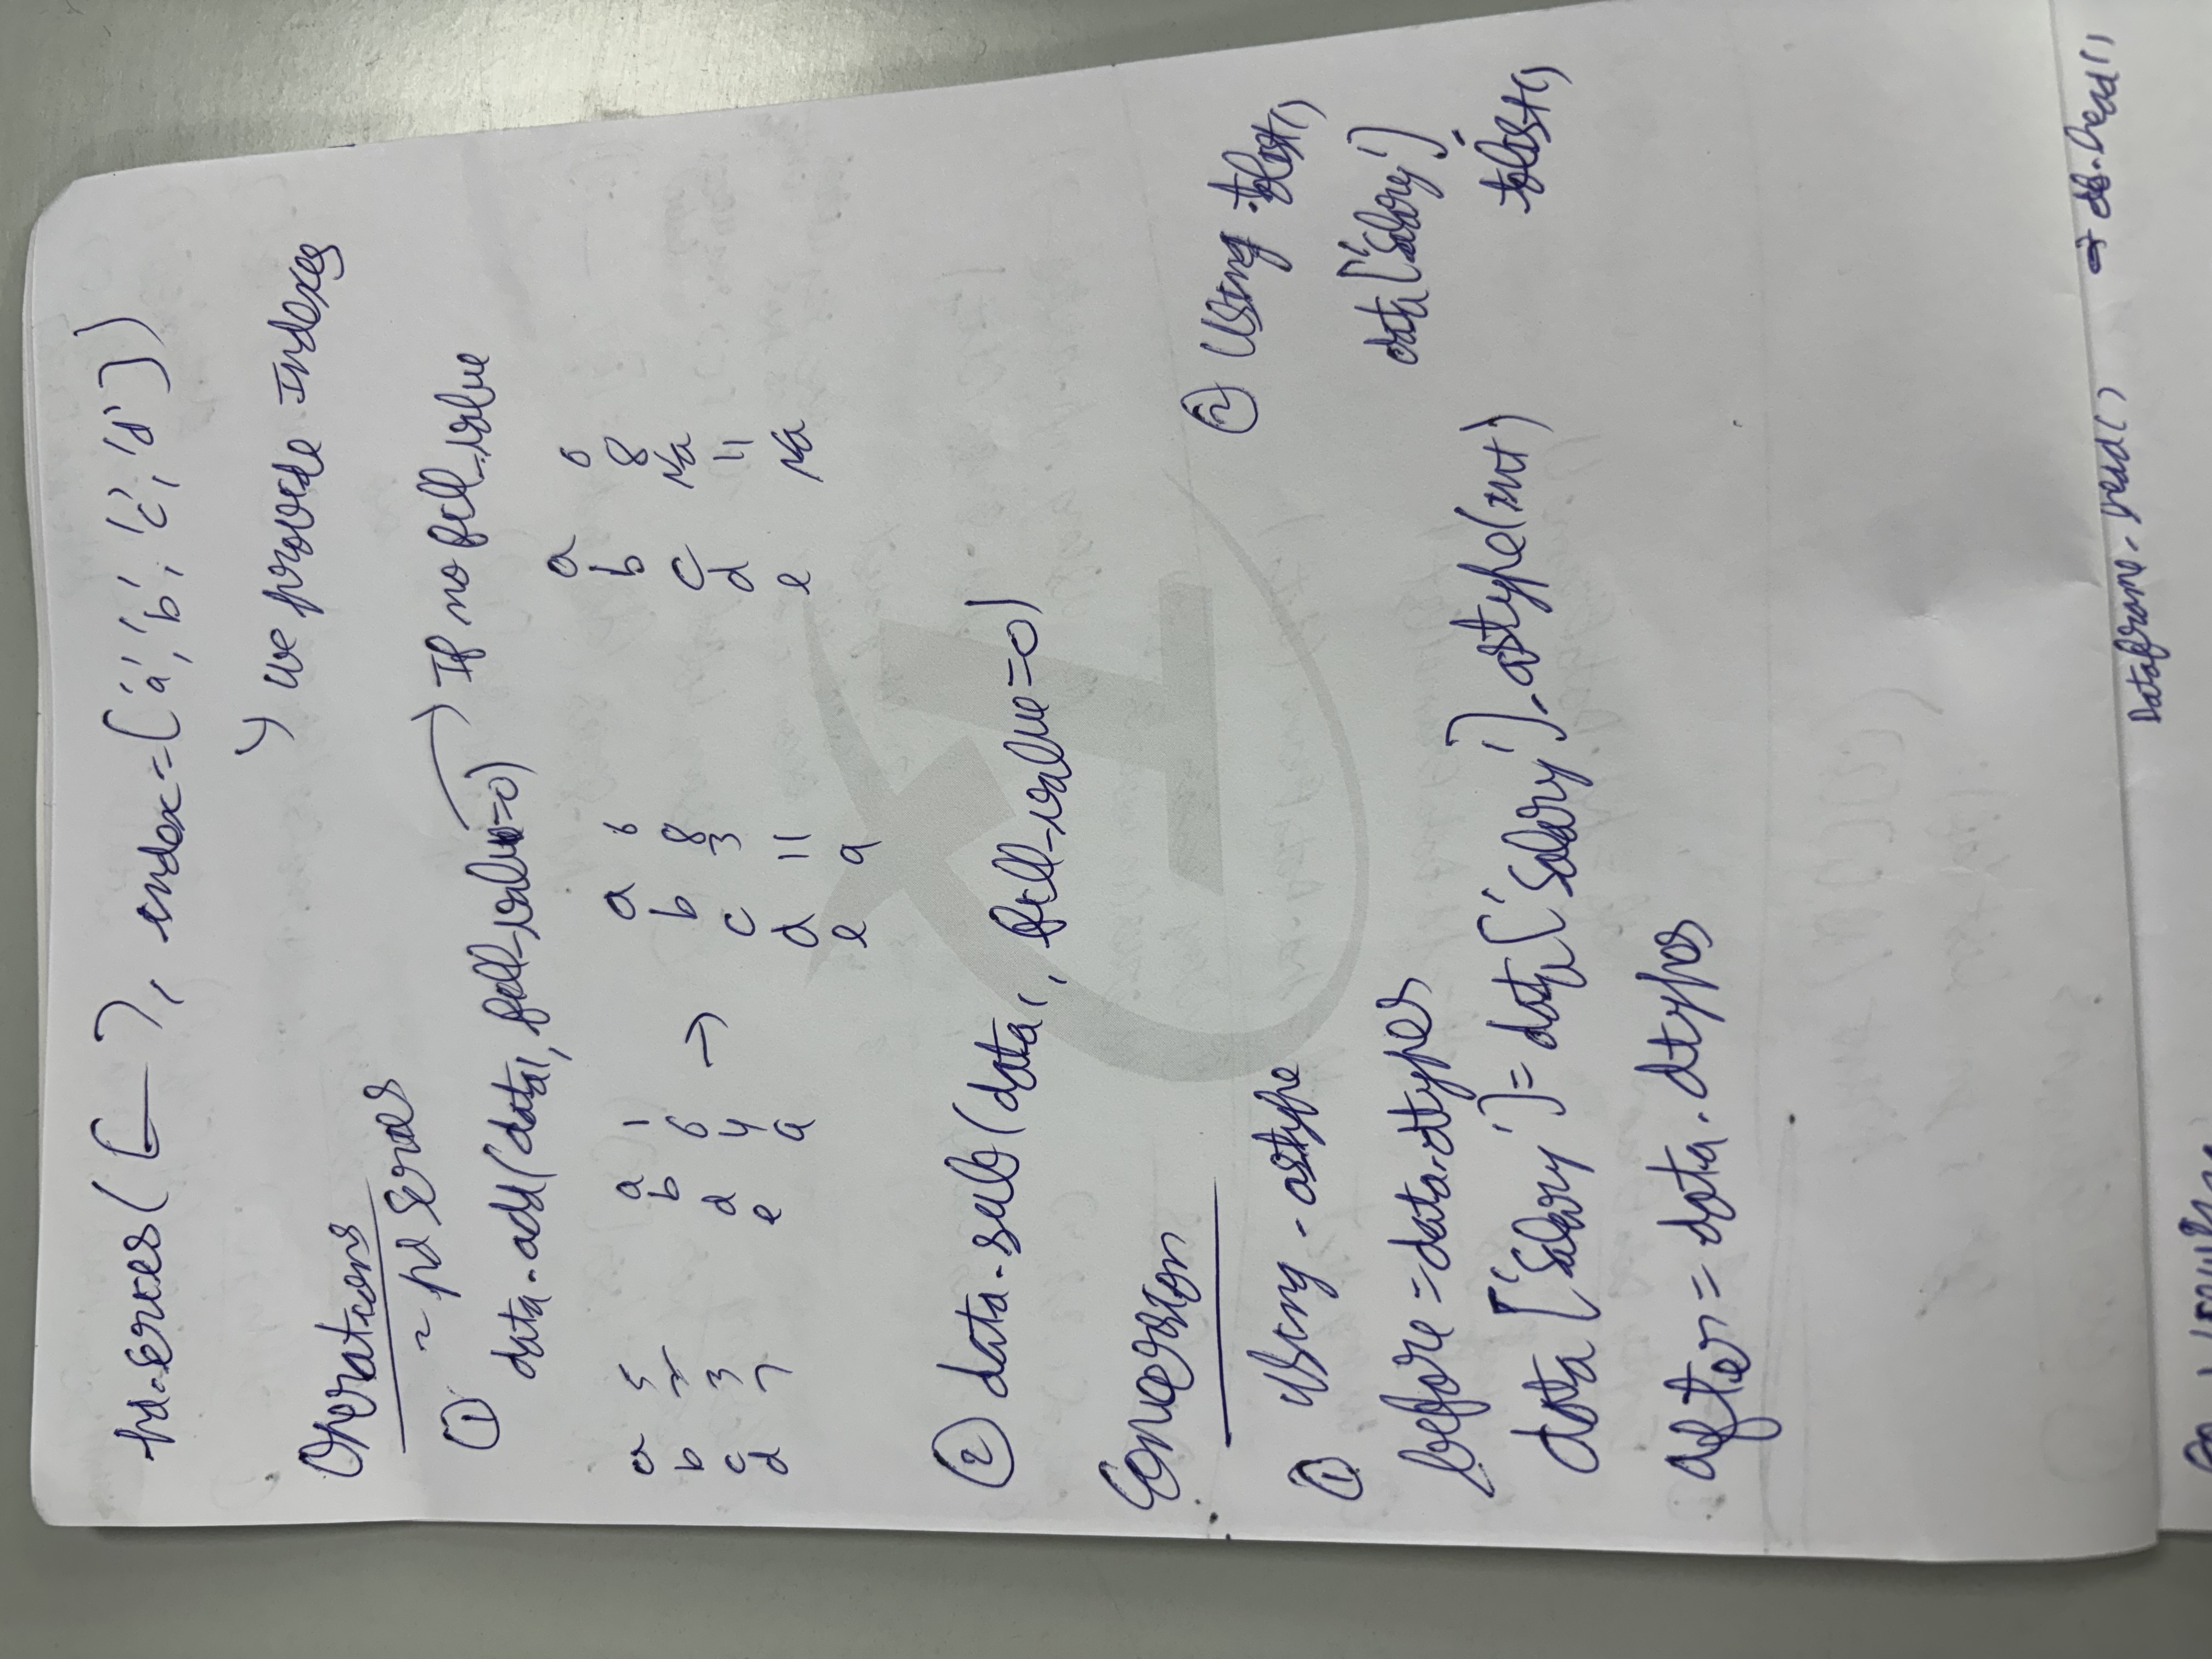 pd.series([— ], index=['a', 'b', 'c', 'd'])
↳ we provide Indexes
Operations
~ pd series
① data.add(data1, fill_value=0) → If no fill_value
a 5 a 1 a 6 a 6
b 2 b 6 → b 8 b 8
c 3 d 4 c 3 c Na
d 7 e 9 d 11 d 11
e 9 e Na
② data.sub(data1, fill_value=0)
Conversion
① Using .astype
before = data.dtypes
data['Salary'] = data['Salary'].astype(int)
after = data.dtypes
② Using .tolist()
data['Salary']
.tolist()
Dataframe.head() → db.head()